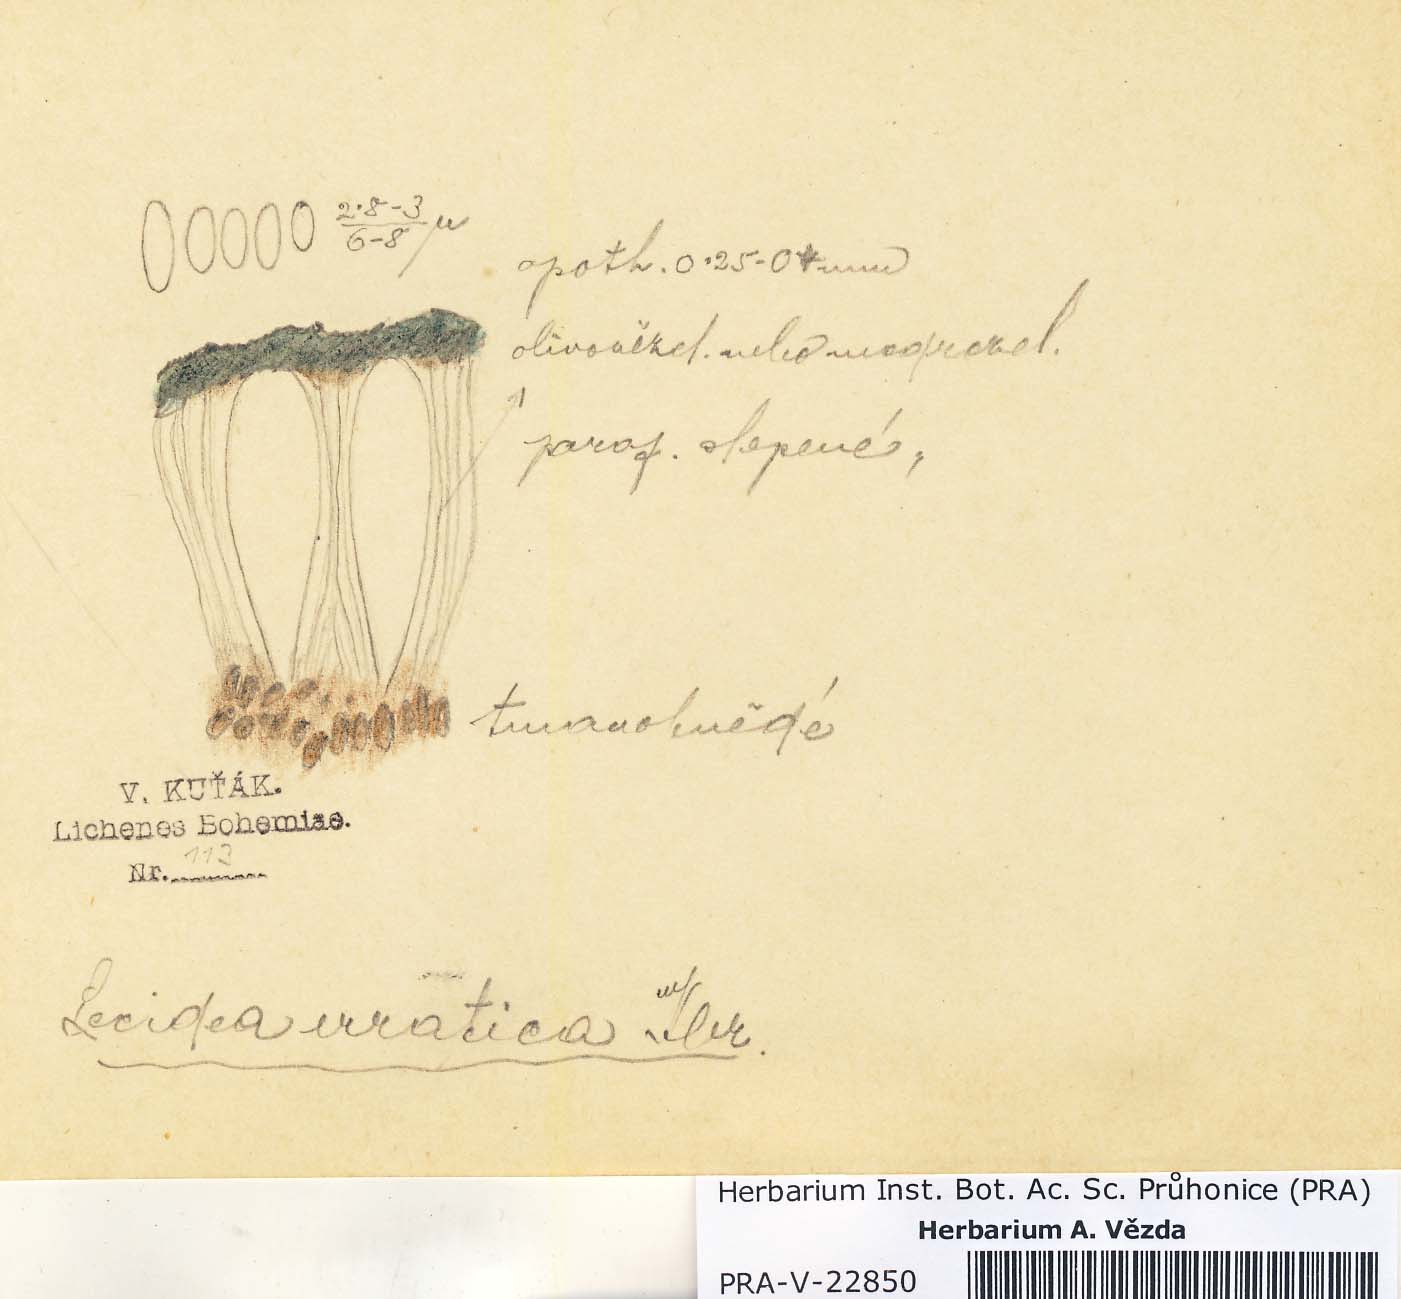 2·8-3
6-8 / µ
apoth. 0·25-04 mm
olivově zel. nebo modrozel.
paraf. slepené,
tmavohnědé
V. KUŤÁK.
Lichenes Bohemiae.
Nr. 113
Lecidea erratica Kbr.
Herbarium Inst. Bot. Ac. Sc. Průhonice (PRA)
Herbarium A. Vězda
PRA-V-22850